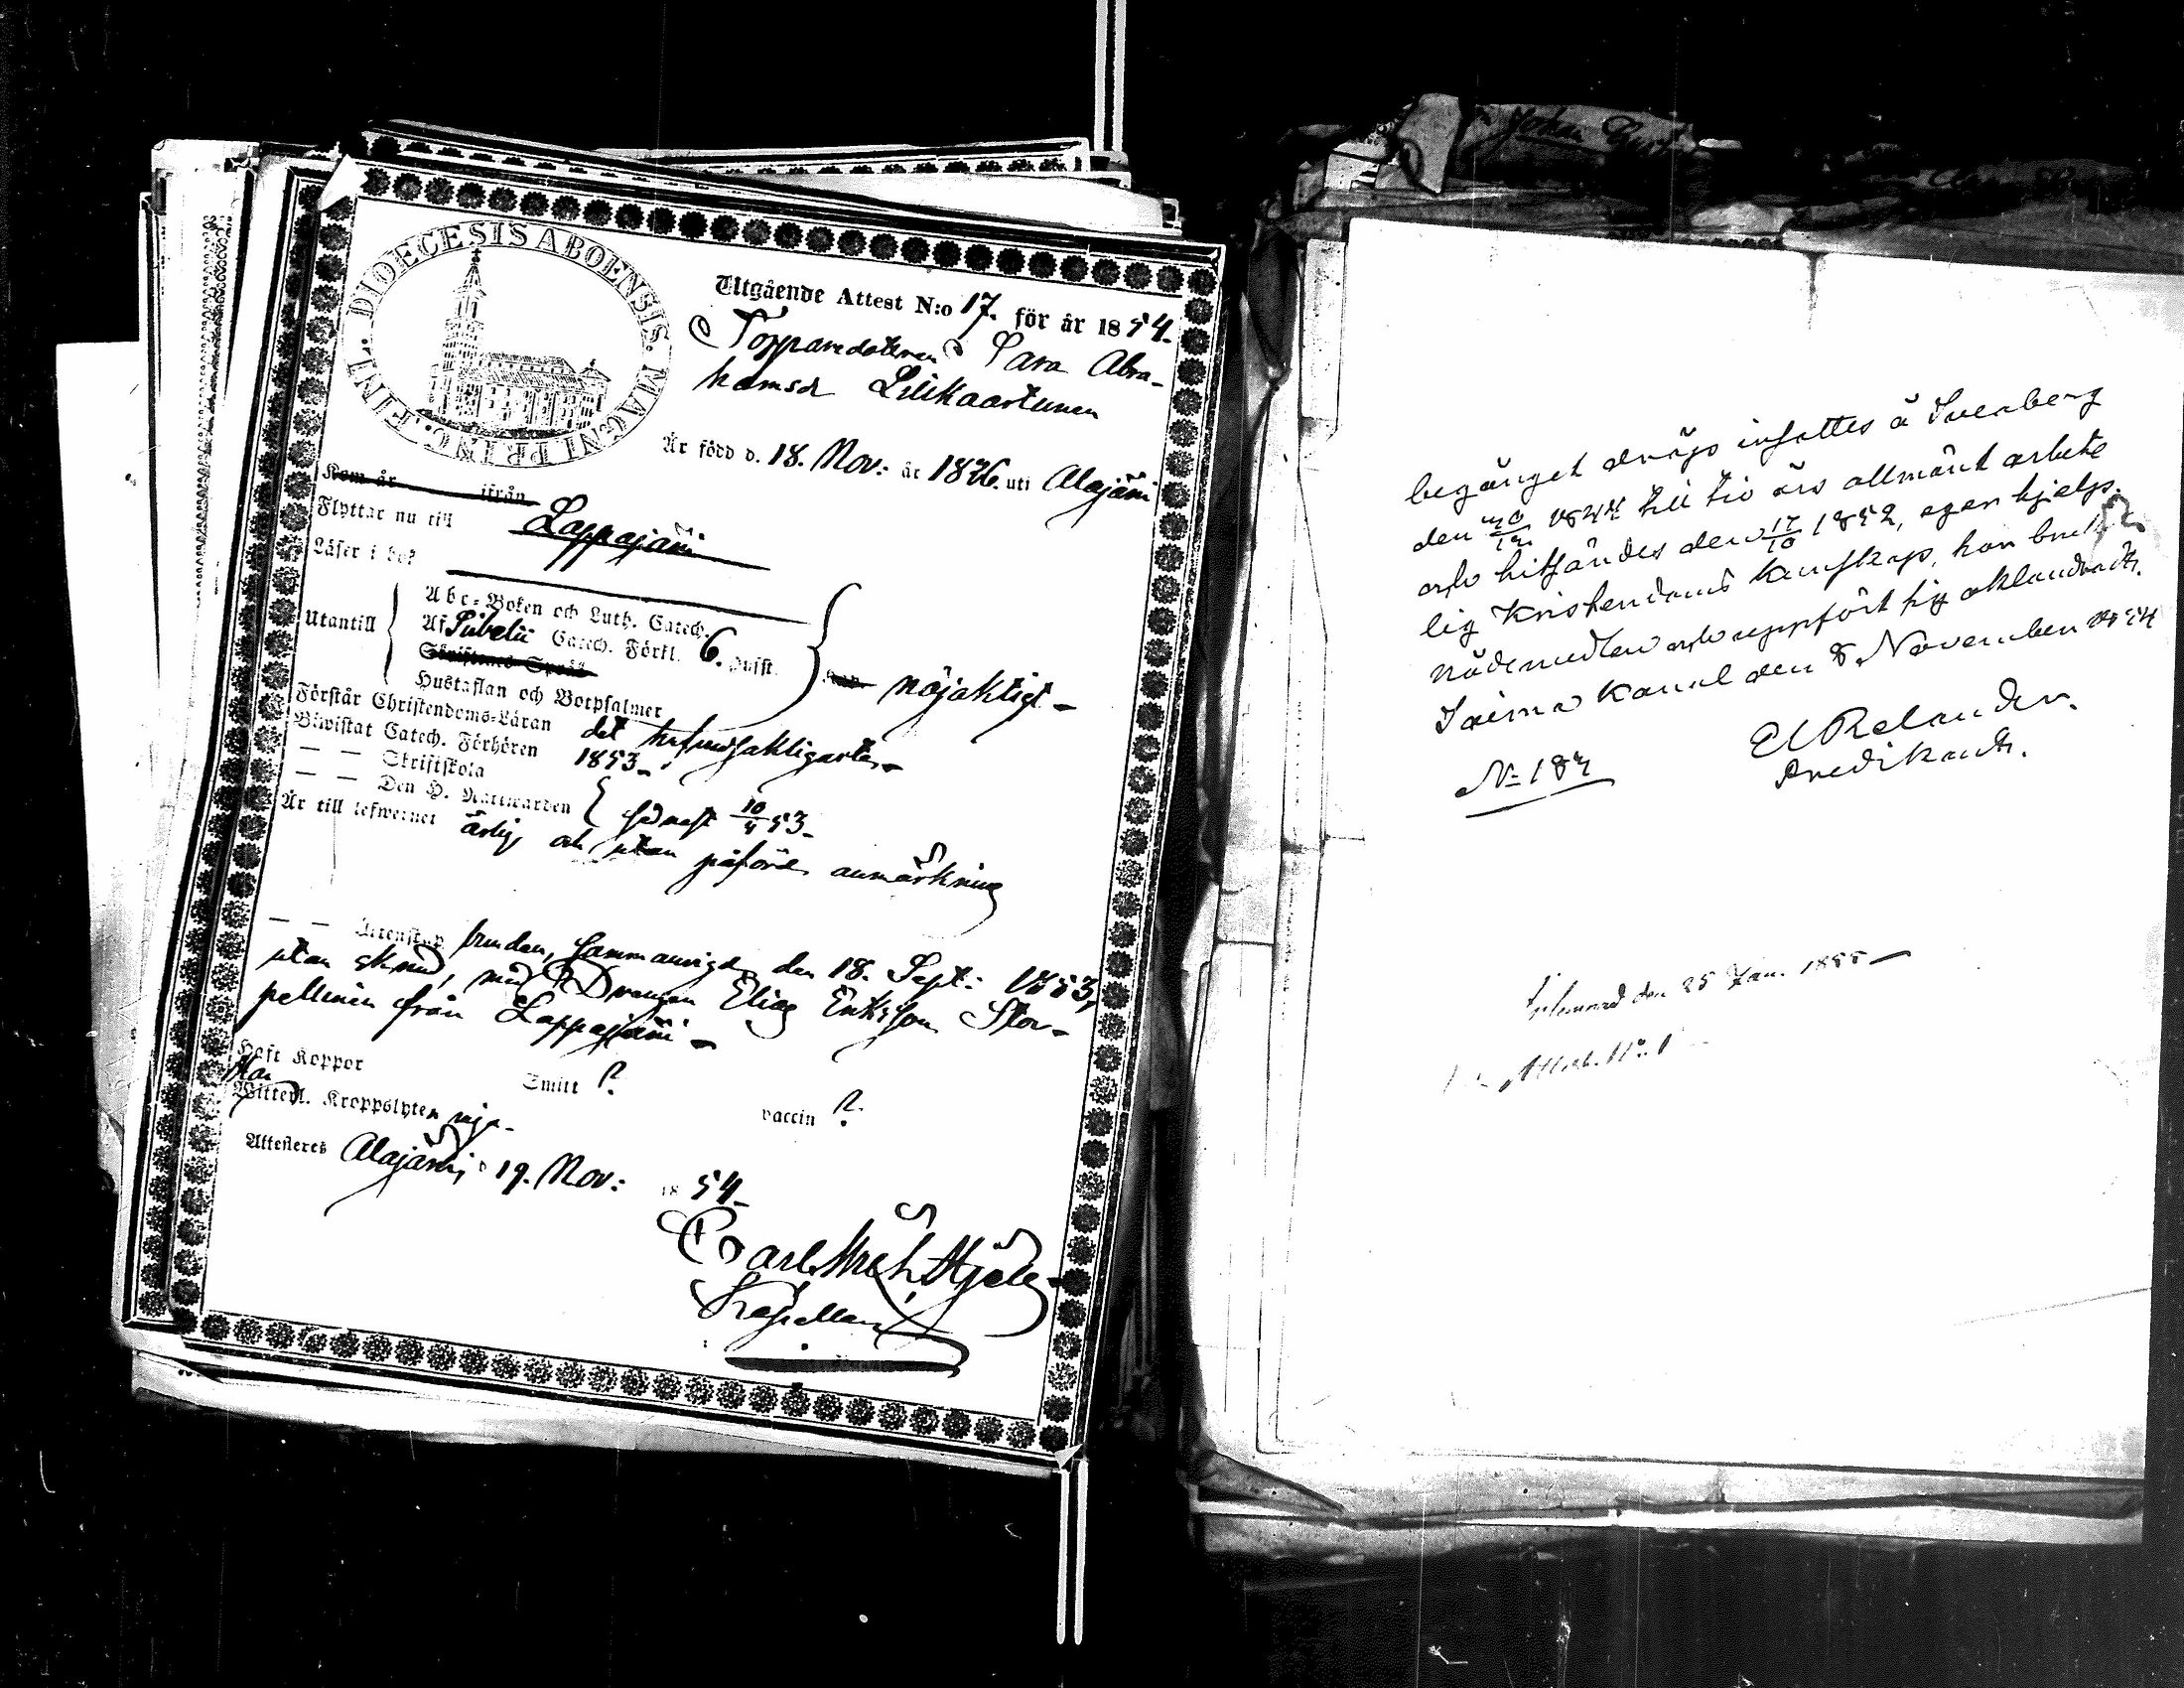 DIOECESIS ABOENSIS. MAGNI PRINC. FINL.
Utgående Attest N:o 17. för år 1854.
Torparedotteren Sara Abra-
hamsdr
Är född d. 18. Nov: år 1826. uti Alajärvi
Kom år ifrån
Flyttar nu till Lappajärvi
Läser i bok
Utantill
Abc-Boken och Luth. Catech.
Af Sibelii Catech. Förkl. 6. Quist.
Skriftens Språk
Hustaflan och Botpsalmer
nöjaktigt
Förstår Christendoms-Läran det hufvudsakligaste
Biwistat Catech. Förhören 1853
— — Skriftskola
— — Den H. Nattwarden senast 10/4 53
Är till lefwernet ärlig och utan påförd anmärkning
— — Äctenskap bunden, sammanvigd den 18. Sept: 1853,
utan med Drengen Elias Eriksson
från Lappajärvi
Haft Koppor Smitt ? vaccin ?
Witterl. Kroppslyten
Attesteres Alajärvi, d 19. Nov: 1854
Carl
Kapellan
begånget dråp insattes å Sveaborg
den 1844 till tio års allmänt arbete
och hitsändes den 17/10 1852, egen hjelp-
lig Kristendoms kunskap, har bruk
nådemedlen och uppfört sig oklanderligt.
Saima Kanal den 8 November 1854
E Relander.
Predikant.
No 184
Inlemnad den 25 Jan. 1855
Attest. No. 1